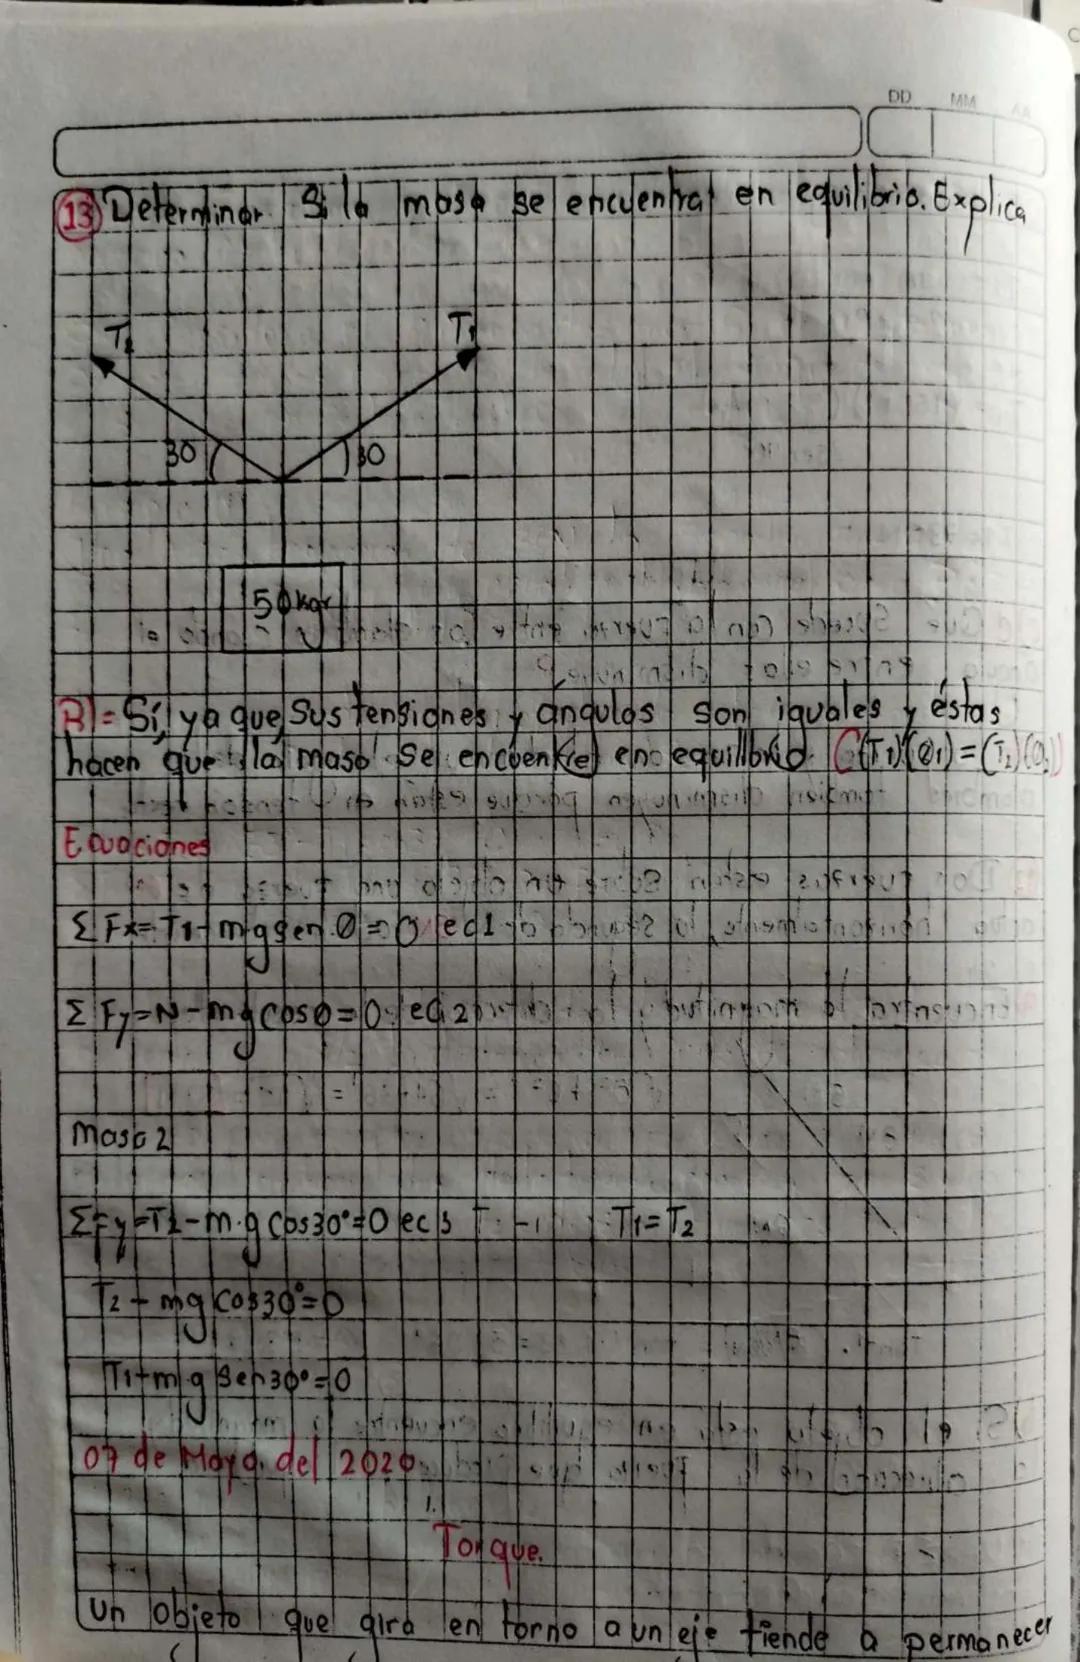 DD MM AA
13 Determinar Si la masa se encuentra en equilibrio. Explica
T2 T1
30 30
50 kgr
R= Sí, ya que, sus tensiones y ángulos son iguales y éstas
hacen que la masa se encuentre en equilibrio. ((T1)(θ1)=(T2)(θ2))
Ecuaciones
ΣFx=T1-mgsen θ=0 ec1
ΣFy=N-mgcosθ=0 ec.2
Masa 2
ΣFy=T2-m.g cos30°=0 ec3 T1=T2
T2-mg cos30°=0
T1-m.g sen30°=0
07 de Mayo. del 2020
Torque.
Un objeto que gira en torno a un eje tiende a permanecer